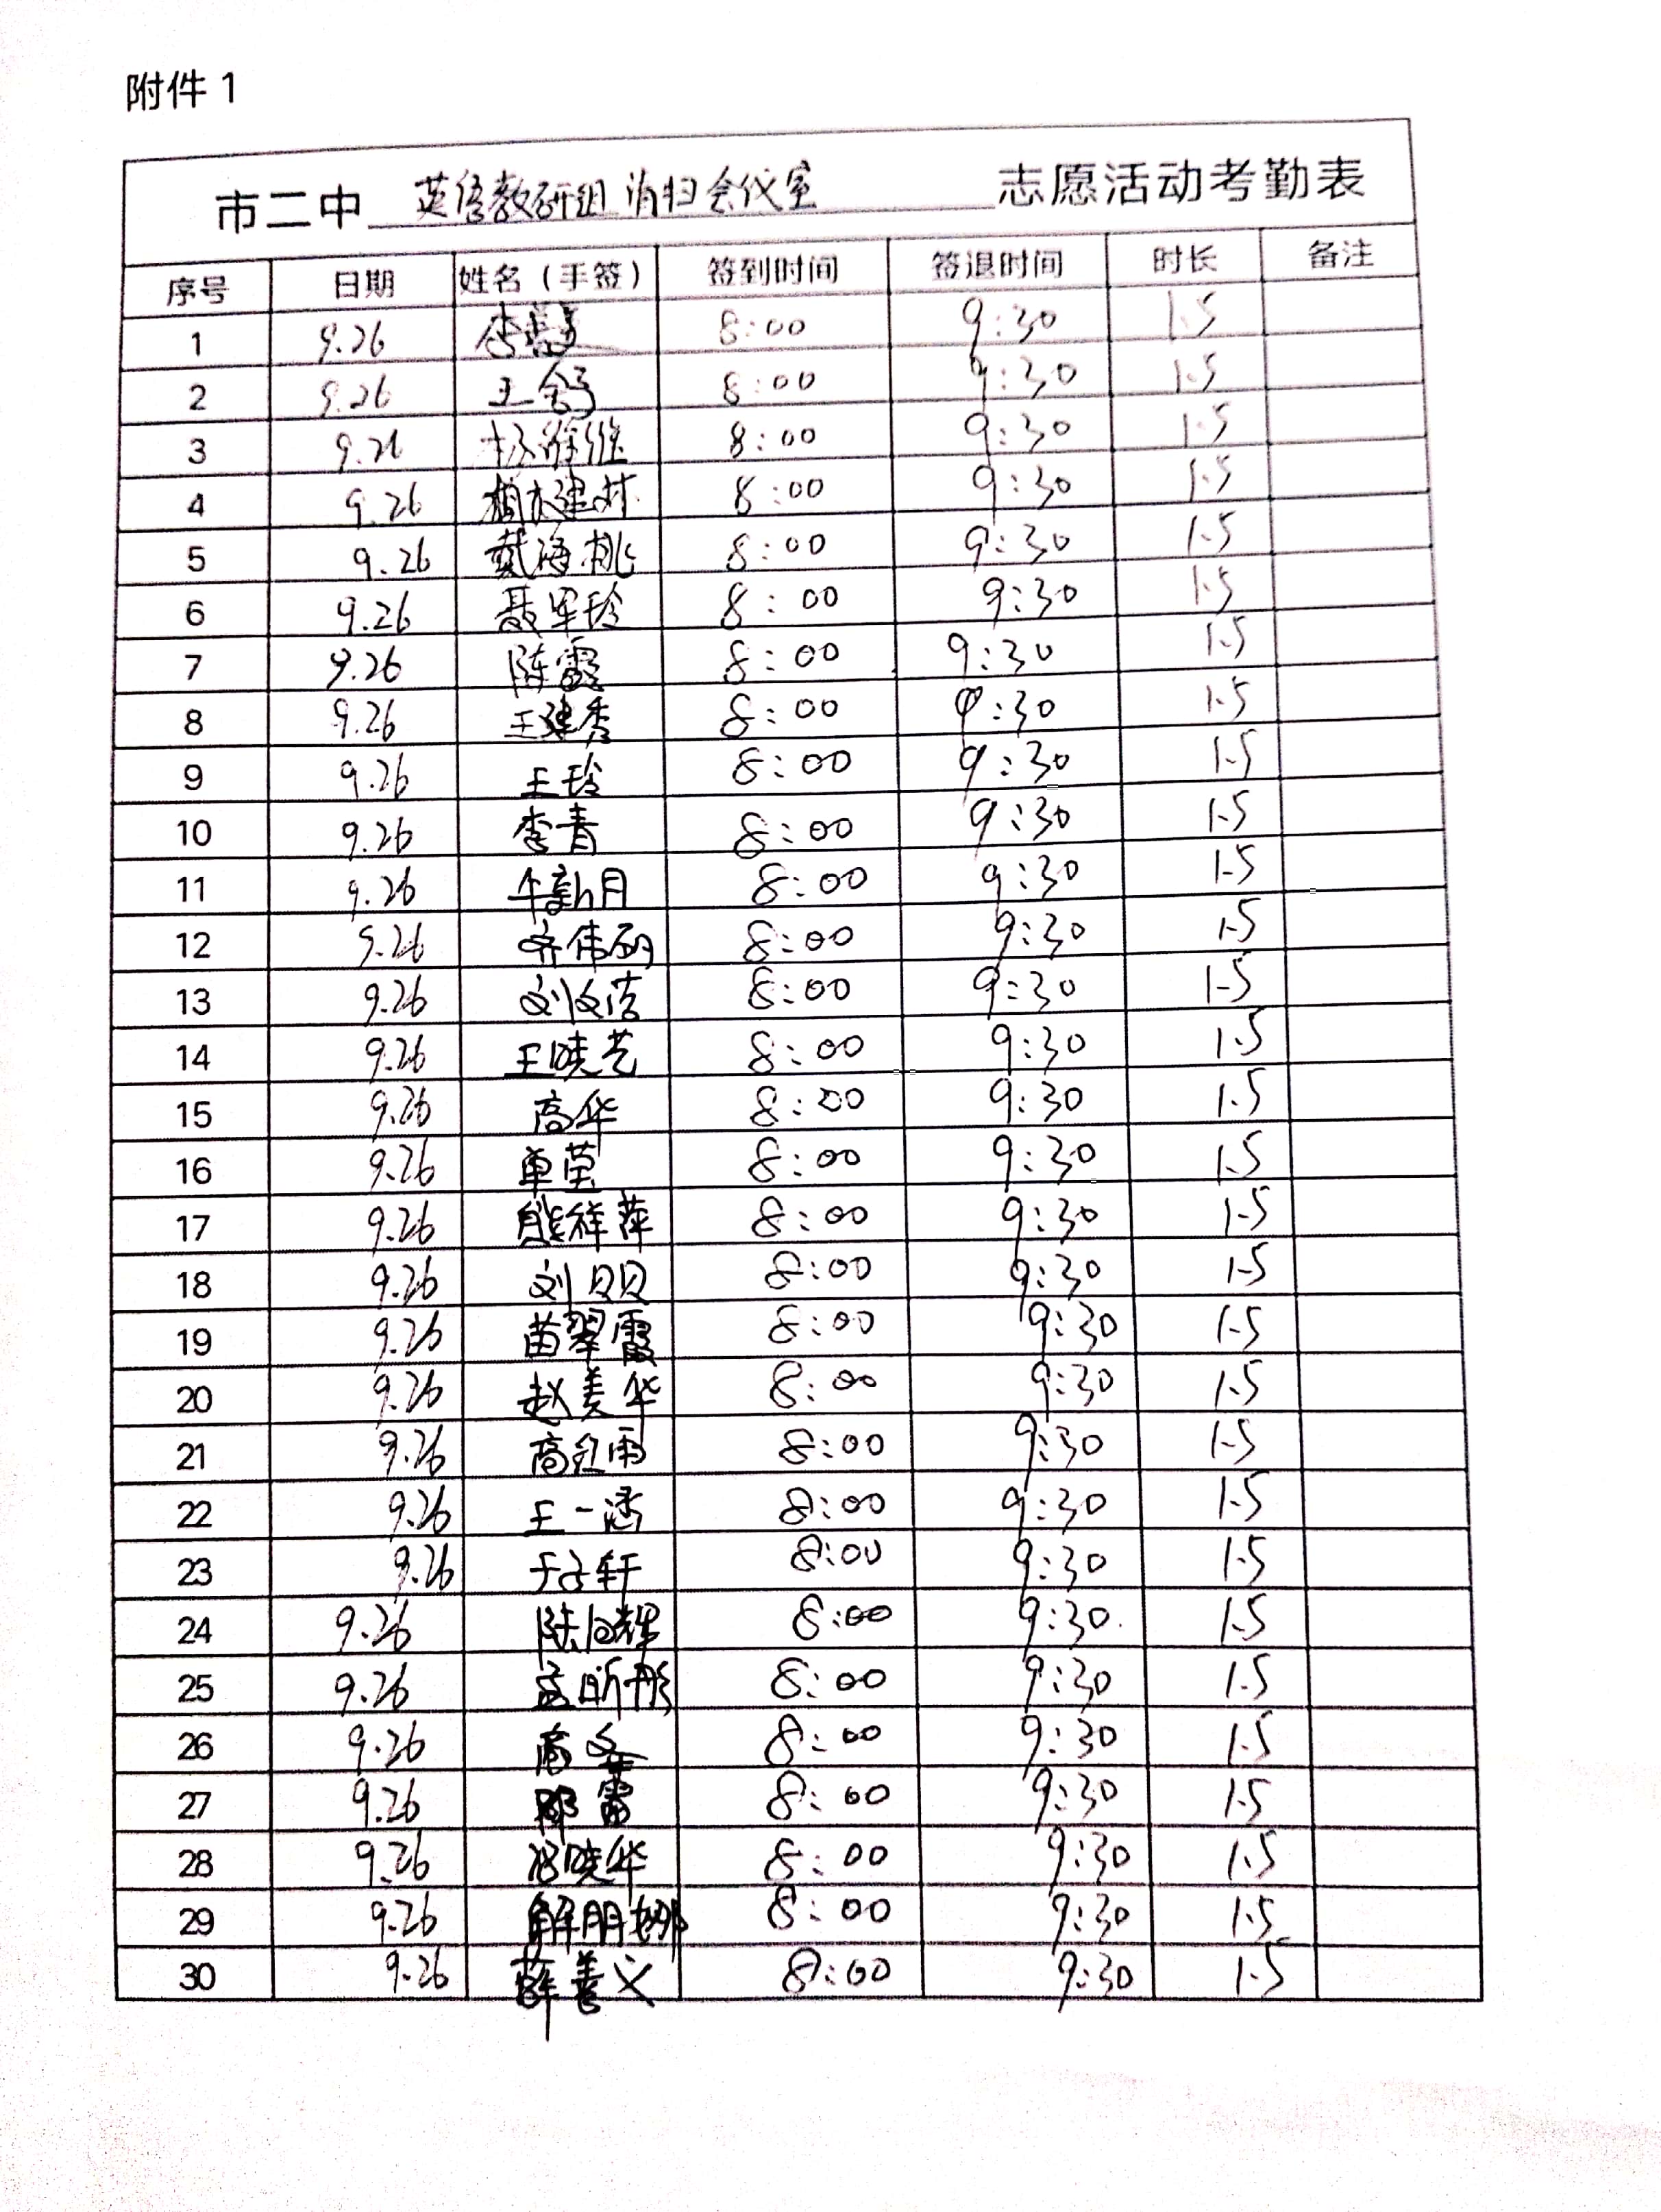 附件 1
市二中 英语教研组 清扫会议室 志愿活动考勤表
序号 日期 姓名（手签） 签到时间 签退时间 时长 备注
1 9.26 李 8:00 9:30 1.5
2 9.26 王 8:00 9:30 1.5
3 9.26 杨维维 8:00 9:30 1.5
4 9.26 8:00 9:30 1.5
5 9.26 戴海桃 8:00 9:30 1.5
6 9.26 聂军玲 8:00 9:30 1.5
7 9.26 陈霞 8:00 9:30 1.5
8 9.26 王建秀 8:00 9:30 1.5
9 9.26 王玲 8:00 9:30 1.5
10 9.26 李青 8:00 9:30 1.5
11 9.26 牛新月 8:00 9:30 1.5
12 9.26 齐伟丽 8:00 9:30 1.5
13 9.26 刘文洁 8:00 9:30 1.5
14 9.26 王晓艺 8:00 9:30 1.5
15 9.26 高华 8:00 9:30 1.5
16 9.26 单莹 8:00 9:30 1.5
17 9.26 熊祥萍 8:00 9:30 1.5
18 9.26 刘贝贝 8:00 9:30 1.5
19 9.26 苗翠霞 8:00 9:30 1.5
20 9.26 赵美华 8:00 9:30 1.5
21 9.26 高钰雨 8:00 9:30 1.5
22 9.26 王一涵 8:00 9:30 1.5
23 9.26 于子轩 8:00 9:30 1.5
24 9.26 8:00 9:30 1.5
25 9.26 孟昕彤 8:00 9:30 1.5
26 9.26 高 8:00 9:30 1.5
27 9.26 8:00 9:30 1.5
28 9.26 冯晓华 8:00 9:30 1.5
29 9.26 解朋娜 8:00 9:30 1.5
30 9.26 薛善义 8:00 9:30 1.5